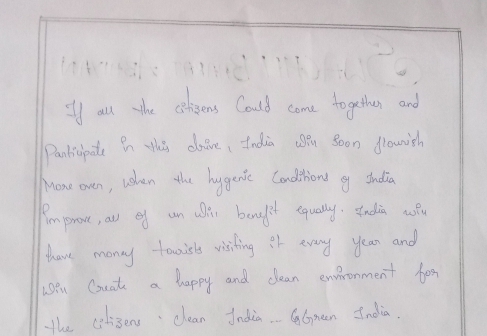 If all the citizens Could come together and
Participate in this drive, India will Soon flourish
More over, when the hygenic Conditions of India
Improve, all of us will benefit equally. India will
have money tourists visiting it every year and
will Create a happy and clean environment for
the citizens. clean India ... Green India.